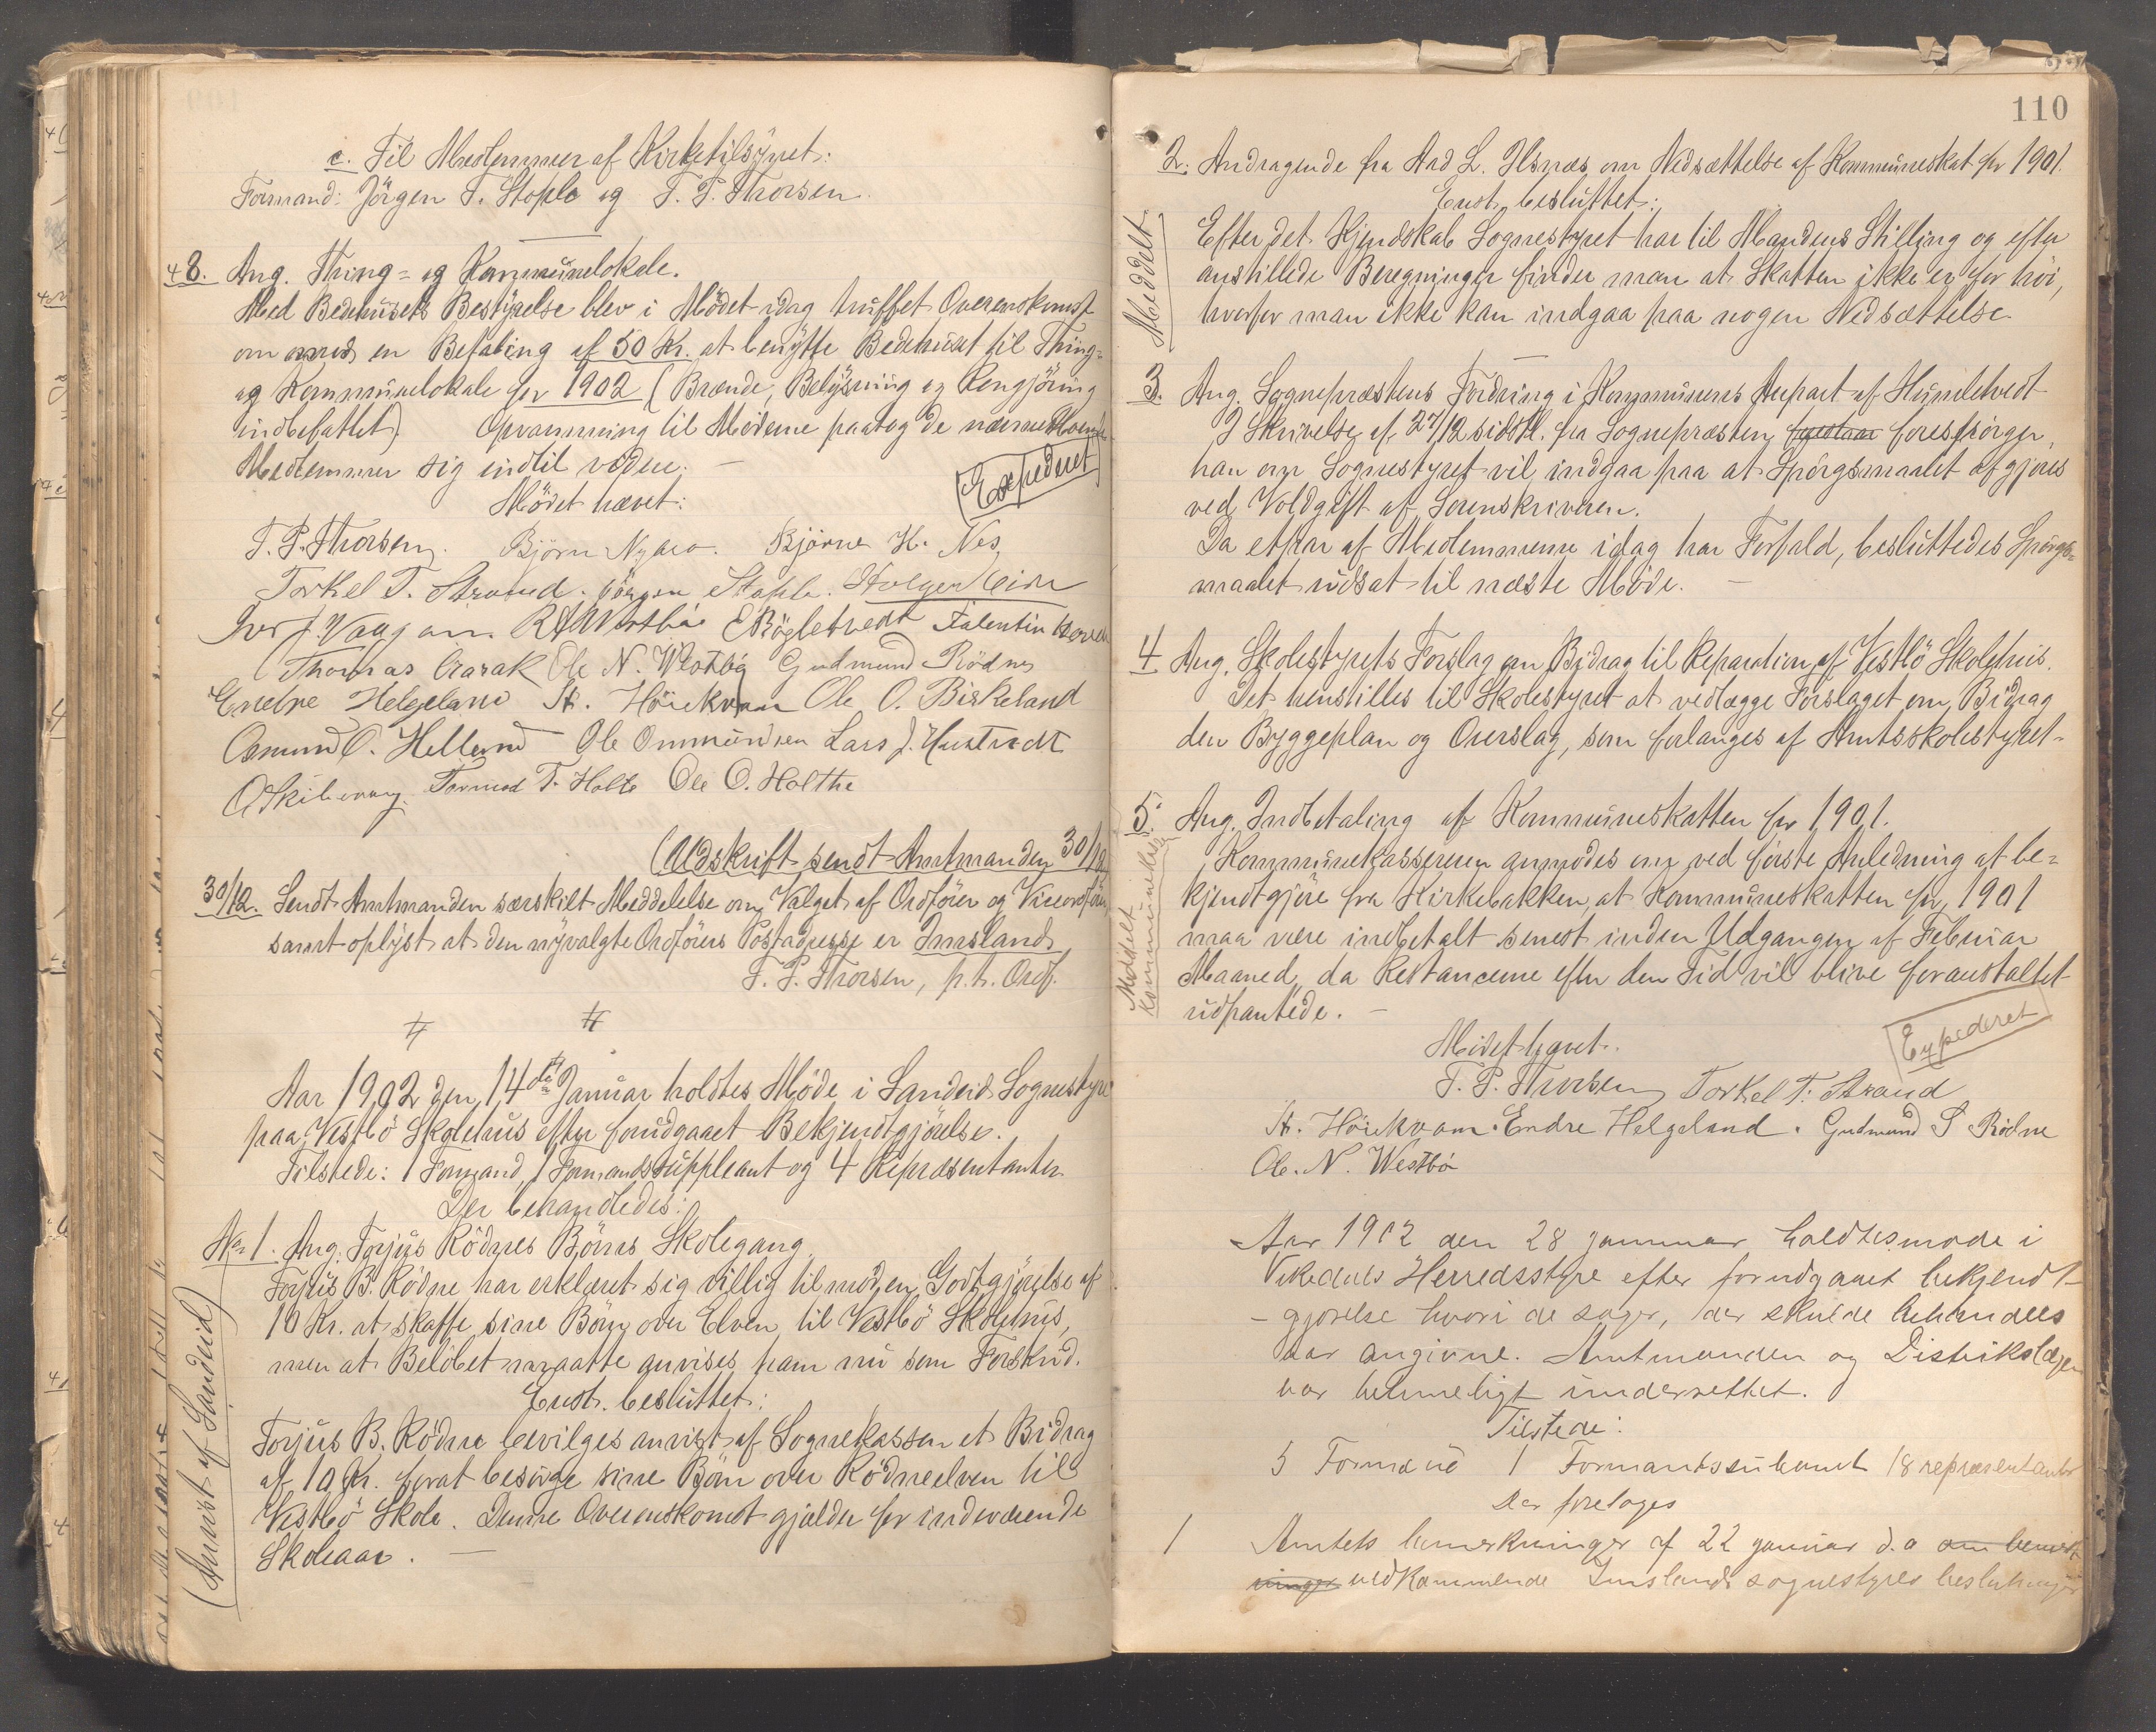 c. Til Medlemmer af Kirketilsynet:
Formand: Jörgen T. Stople og T. P. Thorsen.
48. Ang. Thing- og Kommunelokale.
Med Bedehusets Bestyrelse blev i Mödet idag truffet Overenskomst
om mod en Betaling af 50 Kr. at benytte Bedehuset til Thing-
og Kommunelokale for 1902 (Brænde, Belysning og Rengjöring
indbefattet). Opvarmning til Möderne paatog de nærmestboende
Medlemmer sig indtil videre. —
Expederet
Mödet hævet:
T. P. Thorsen. Björn Nybro. Bjórne H. Nes
Torkel T. Strand. Jörgen Stople. Holger Eide
Iver J. Vaagen. Westbó E Bögletvedt Falentin Hoven
Thomas Ole N. Westbö Gudmund Rödne
Endre Helgeland A. Höiekvam Ole O. Birkeland
Osmund O. Helland Ole Ommundsen Lars J. Hustvedt
Tormod T. Holte Ole O. Holthe
(Udskrift sendt Amtmanden 30/12
30/12. Sendt Amtmanden særskilt Meddelelse om Valget af Ordförer og Viceordförer
samt oplyst at den nyvalgte Ordförers Postadresse er Imsland.
T. P. Thorsen, p.t. Ordf.
# #
Aar 1902 den 14de Januar holdtes Möde i Sandeid Sognestyre
paa Vestbö Skolehus efter forudgaaet Bekjendtgjörelse.
Tilstede: 1 Formand, 1 Formandssuppleant og 4 Repræsentanter.
Der behandledes:
No 1. Ang. Torjus Rödnes Börns Skolegang.
Torjus B. Rödne har erklæret sig villig til mod en Godtgjörelse af
10 Kr. at skaffe sine Börn over Elven til Vestbö Skolehus,
men at Belöbet maatte anvises ham nu som Forskud.
Enst. besluttet:
(Anvist af Sandeid)
Torjus B. Rödne bevilges anvist af Sognekassen et Bidrag
af 10 Kr. forat besörge sine Börn over Rödneelven til
Vestbö Skole. Denne Overenskomst gjælder for indeværende
Skoleaar. —
110
2. Andragende fra Ard L. Ilsnæs om Nedsættelse af Kommuneskat for 1901.
Enst. besluttet:
Meddelt
Efter det Kjendskab Sognestyret har til Mandens Stilling og efter
anstillede Beregninger finder man at Skatten ikke er for höi,
hvorfor man ikke kan indgaa paa nogen Nedsættelse
3. Ang. Sognepræstens Fordring i Kommunens Anpart af Hundetvedt
I Skrivelse af 27/12 sidstl. fra Sognepræsten forestaar forespörger
han om Sognestyret vil indgaa paa at Spörgsmaalet afgjöres
ved Voldgift af Sorenskriveren.
Da etpar af Medlemmerne idag har Forfald, besluttedes Spörgs-
maalet udsat til næste Möde. —
4 Ang. Skolestyrets Forslag om Bidrag til Reparation af Vestbö Skolehus.
Det henstilles til Skolestyret at vedlægge Forslaget om Bidrag
den Byggeplan og Overslag, som forlanges af Amtsskolestyret.
5. Ang. Indbetaling af Kommuneskatten for 1901.
Meddelt
Kommunekasserer
Kommunekassereren anmodes om ved förste Anledning at be-
kjendtgjöre fra Kirkebakken, at Kommuneskatten for 1901
maa være indbetalt senest inden Udgangen af Februar
Maaned, da Restancerne efter den Tid vil blive foranstaltet
udpantede. —
Expederet
Mödet hævet.
T. P. Thorsen Torkel T. Strand
A. Höiekvam. Endre Helgeland. Gudmund S Rödne
Ole. N. Westbö
Aar 1902 den 28 januar holdtes möde i
Vikedals Herredsstyre efter forudgaaet bekjendt-
- gjörelse hvori de sager, der skulde behandles
var angivne. Amtmanden og Distrikslægen
var behørigt underrettet.
Tilstede:
5 Formænd 1 Formandssuplant 18 repræsentanter
Der foretoges
1 Amtets bemerkninger af 22 januar d.a om bemerk
ninger vedkommende Imslands sognestyres beslutninger